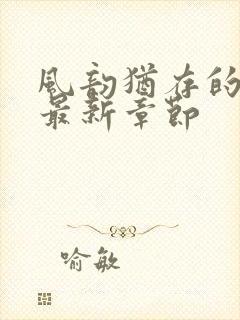 风韵犹存的
最新章节
喻敏